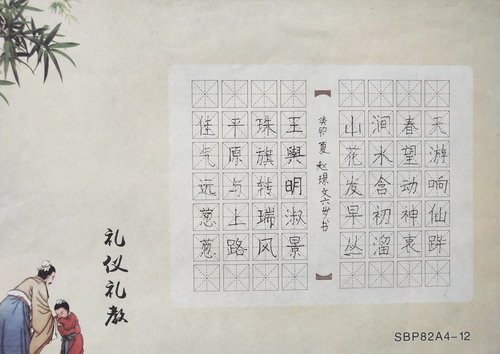 天游响仙跸
春望动神衷
涧水含初溜
山花发早丛
癸卯夏 赵璟文六岁书
王舆明淑景
珠旗转瑞风
平原与上路
佳气远葱葱
礼仪礼教
SBP82A4-12